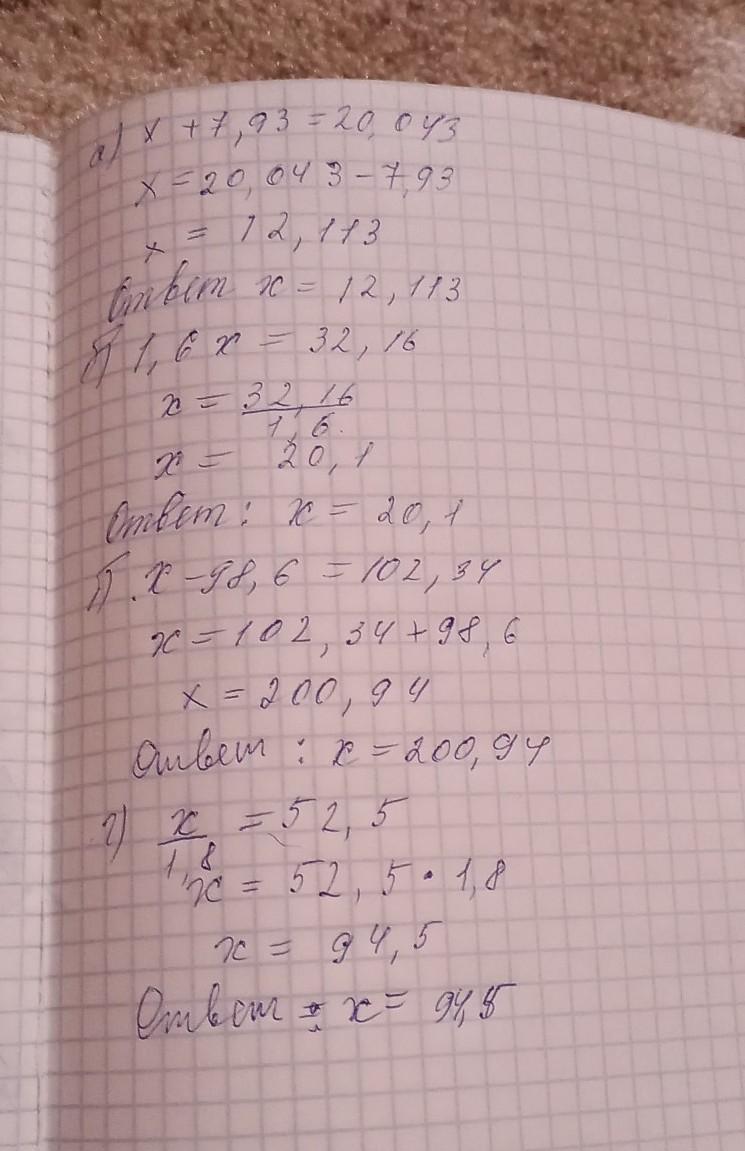 а) x + 7,93 = 20,043
x = 20,043 - 7,93
x = 12,113
Ответ x = 12,113
б) 1,6 x = 32,16
x = 32,16
1,6
x = 20,1
Ответ: x = 20,1
б) x - 98,6 = 102,34
x = 102,34 + 98,6
x = 200,94
Ответ: x = 200,94
г) x = 52,5
1,8
x = 52,5 · 1,8
x = 94,5
Ответ: x = 94,5